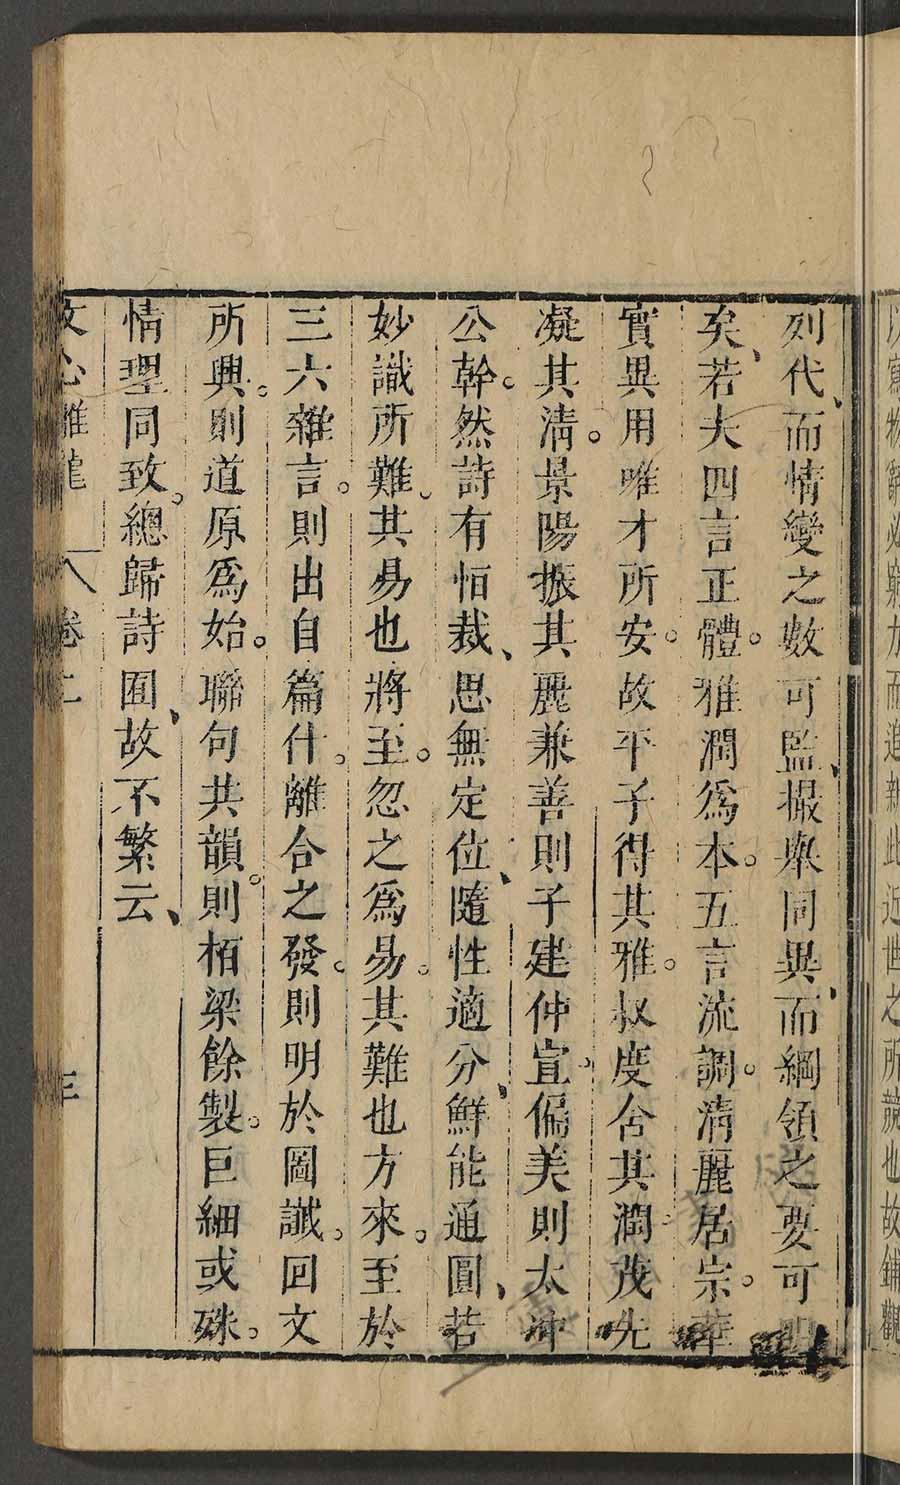 以寫物辭必窮力而追新此近世之所競也故鋪觀
列代、而情變之數可監、撮舉同異、而綱領之要可
矣、若夫四言正體。雅潤爲本。五言流調。清麗居宗。華
實異用唯才所安。故平子得其雅。叔度含其潤茂先
凝其清。景陽振其麗兼善則子建仲宣、偏美則太冲
公幹。然詩有恒裁、思無定位、隨性適分、鮮能通圓、若
妙識所難。其易也將至。忽之爲易。其難也方來。至於
三六雜言。則出自篇什。離合之發。則明於圖讖。回文
所興。則道原爲始。聯句共韻。則栢梁餘製。巨細或殊。
情理同致。總歸詩囿、故不繁云、
文心雕龍 卷二